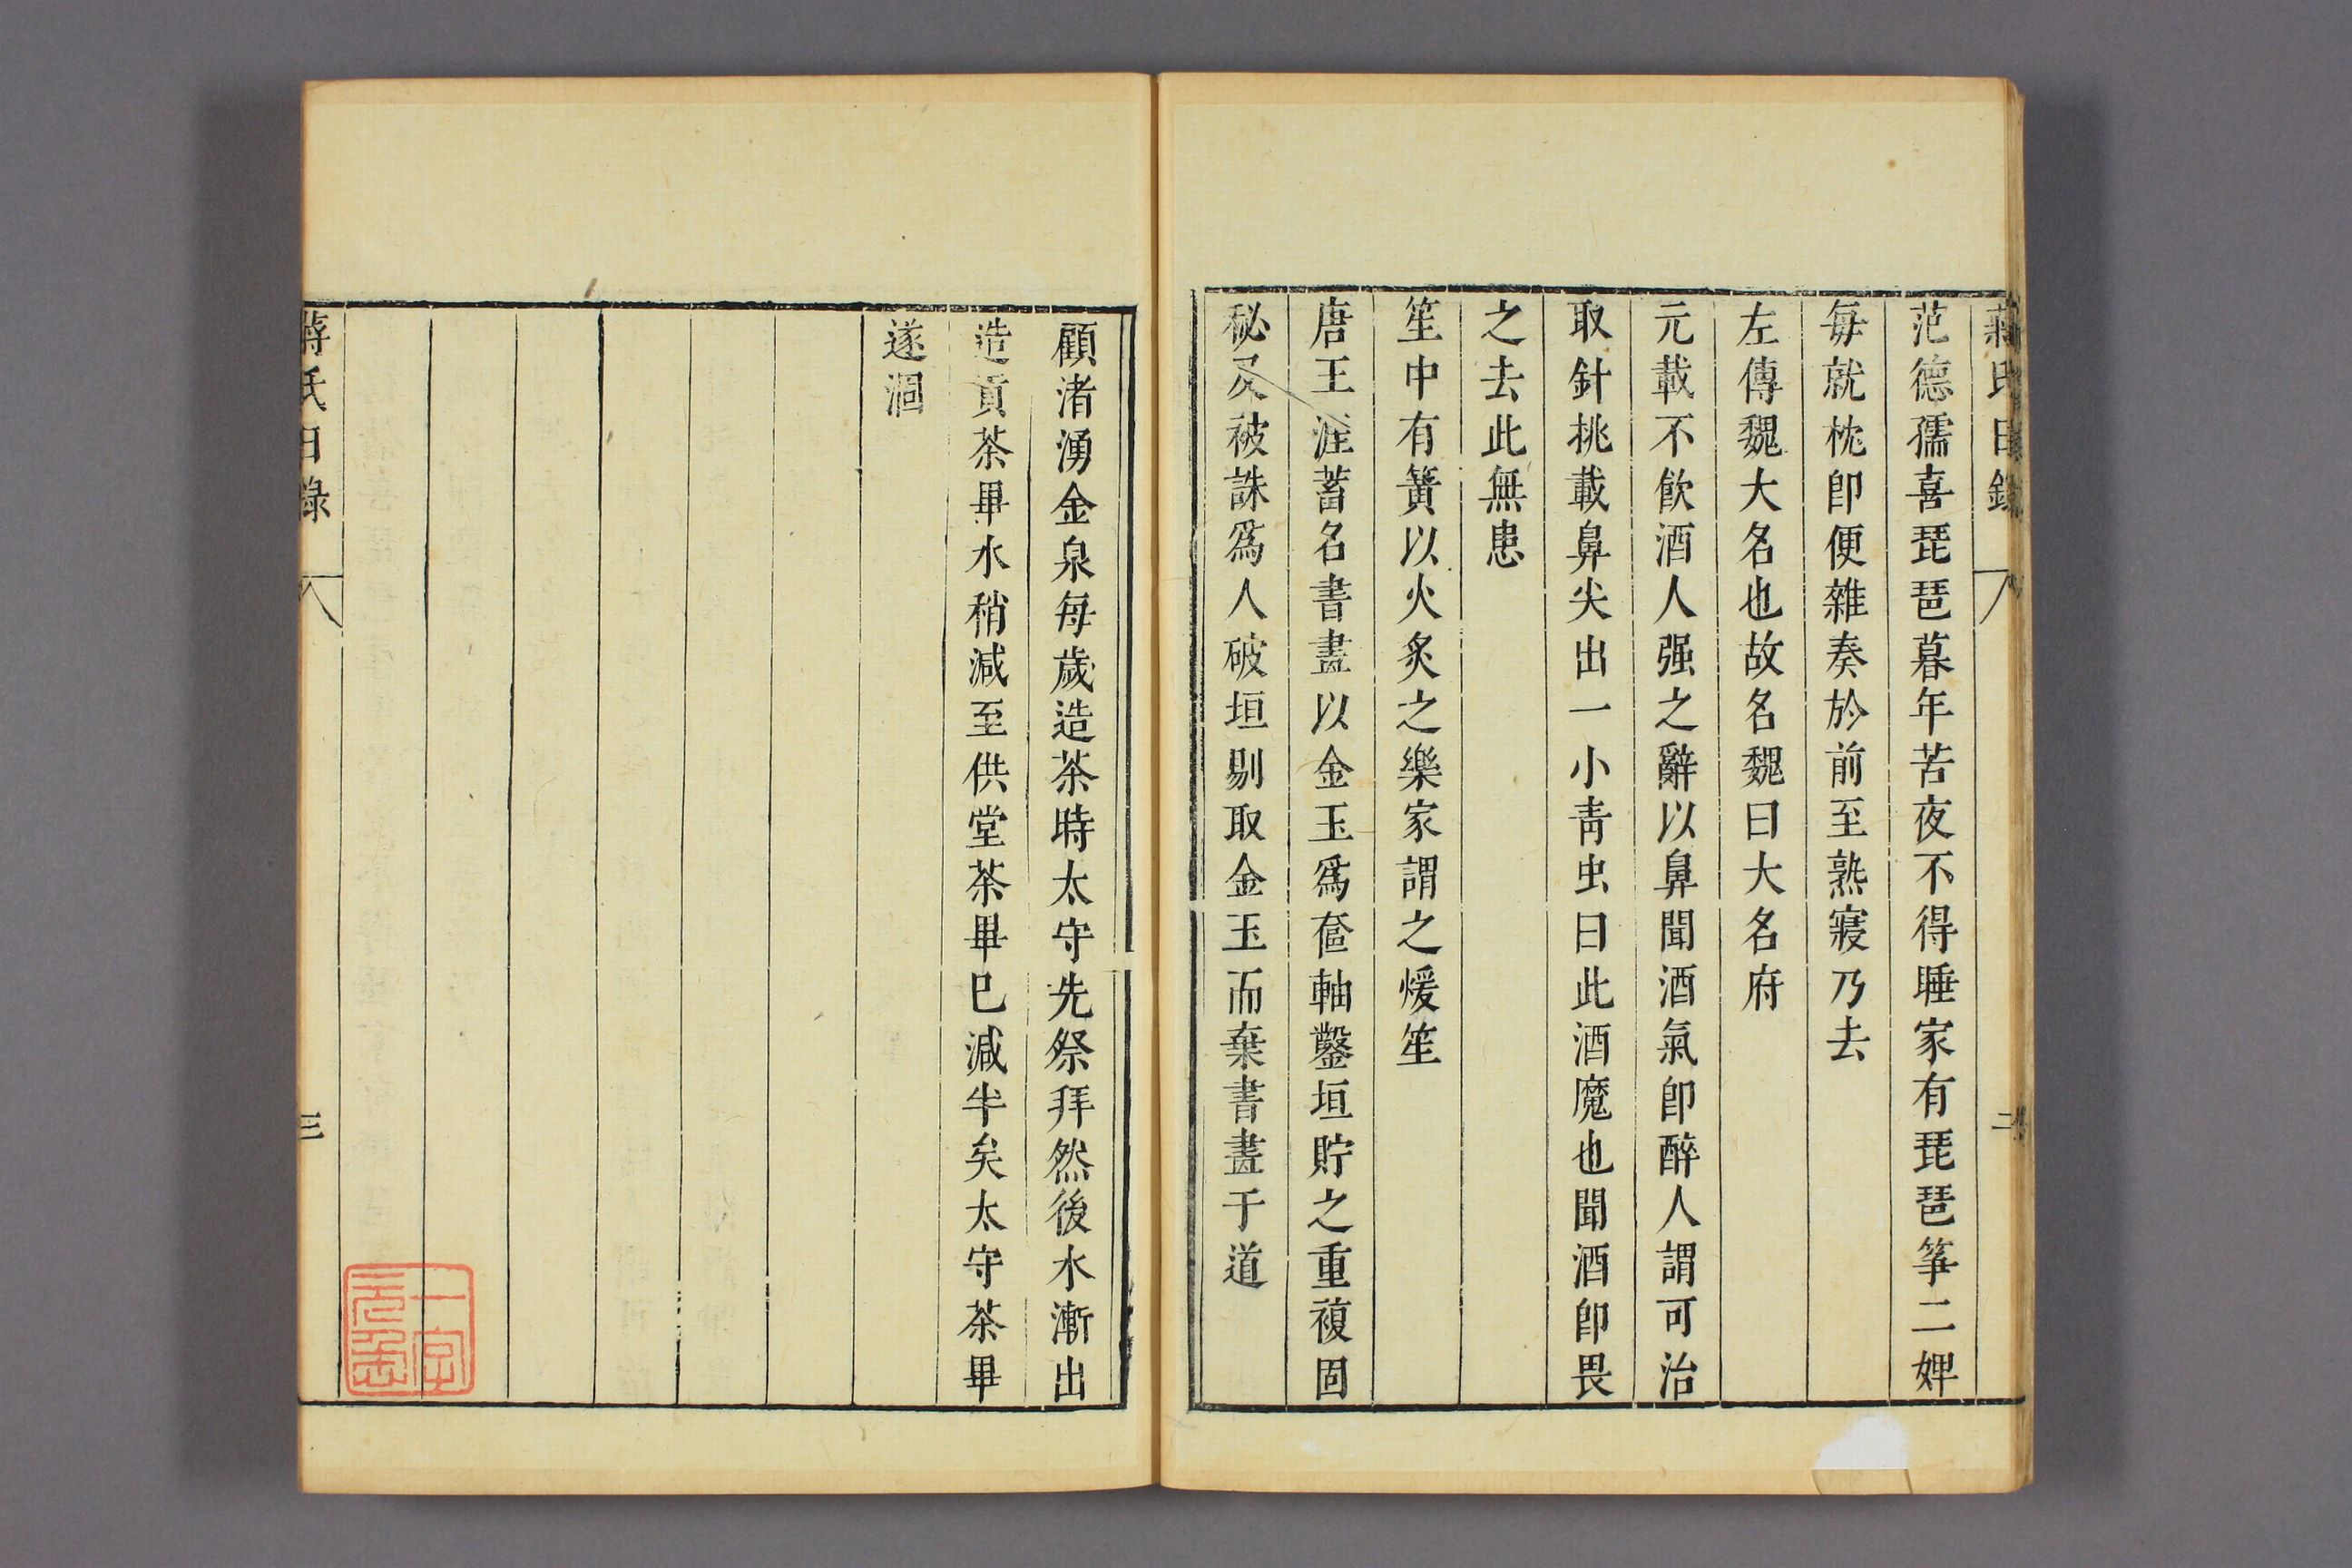 蔣氏日錄
二
范德孺喜琵琶暮年苦夜不得睡家有琵琶筝二婢
每就枕卽便雜奏於前至熟寢乃去
左傳魏大名也故名魏曰大名府
元載不飲酒人强之辭以鼻聞酒氣卽醉人謂可治
取針挑載鼻尖出一小靑虫曰此酒魔也聞酒卽畏
之去此無患
笙中有簧以火炙之樂家謂之煖笙
唐王涯蓄名書畫以金玉爲奩軸鑿垣貯之重複固
秘及被誅爲人破垣剔取金玉而棄書畫于道
顧渚湧金泉每歲造茶時太守先祭拜然後水漸出
造貢茶畢水稍減至供堂茶畢巳減半矣太守茶畢
遂涸
蔣氏日錄
三